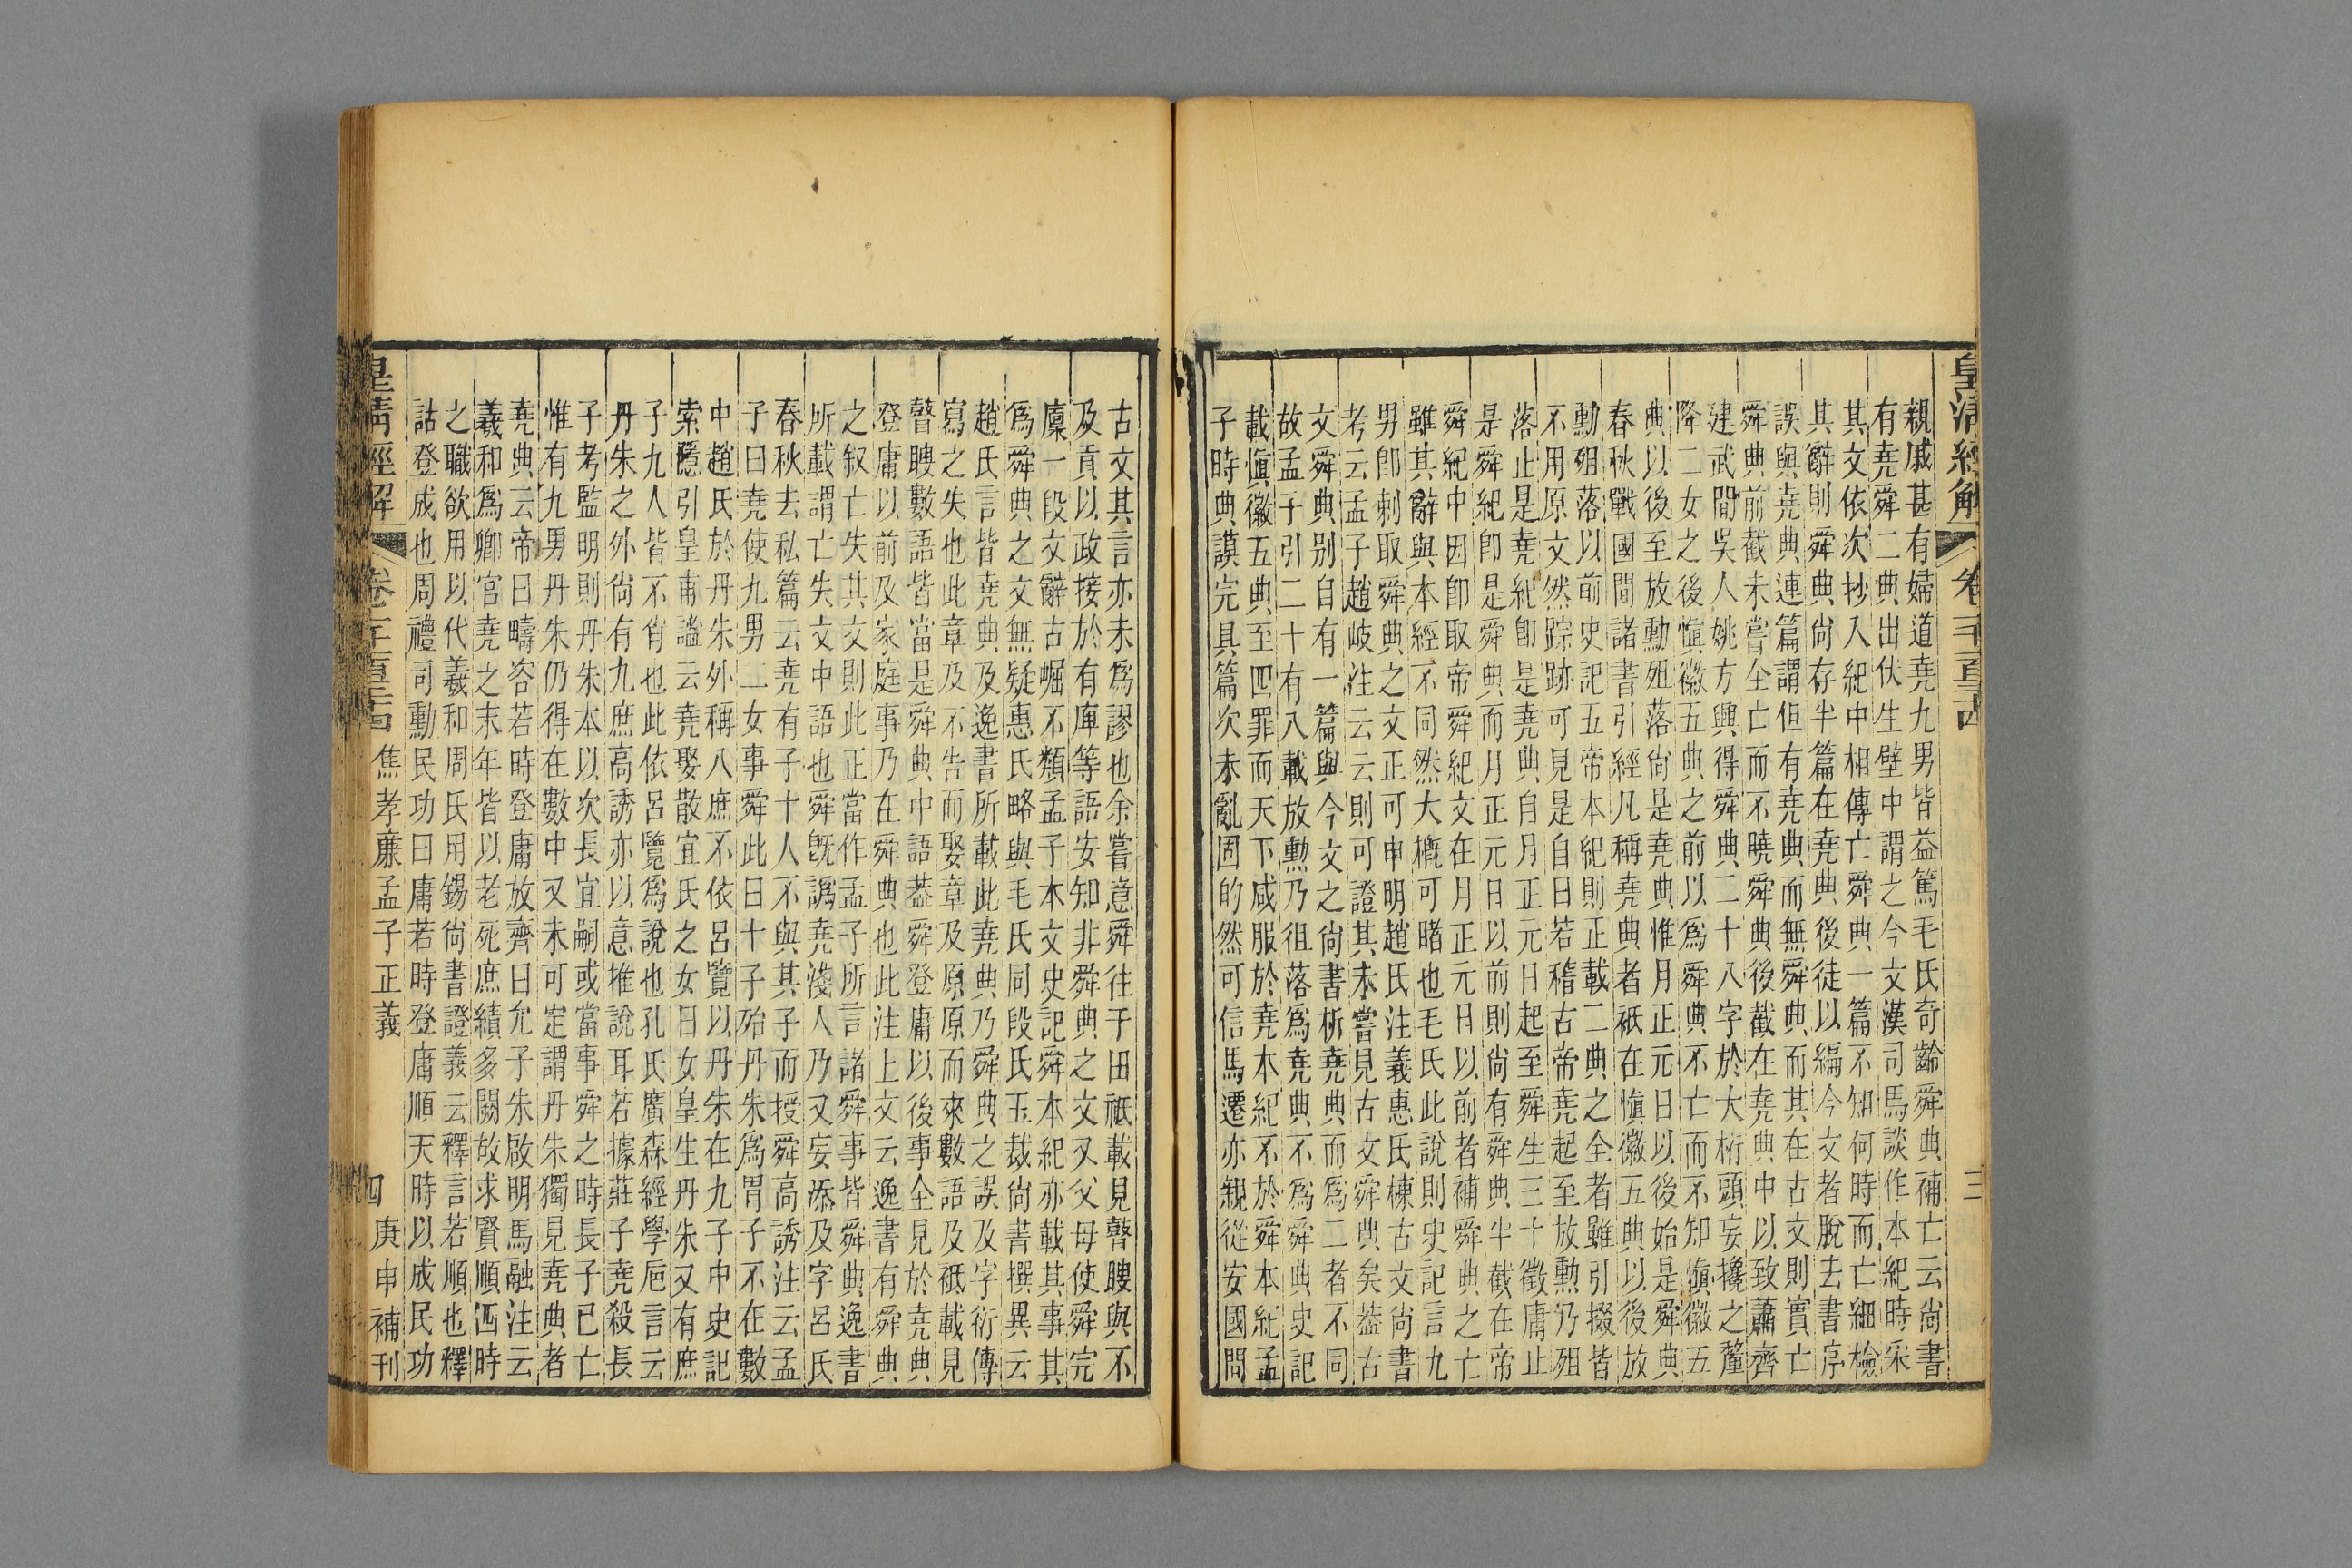 皇清經解
親戚甚有婦道堯九男皆益篤毛氏奇齡舜典補亡云尚書
有堯舜二典出伏生壁中謂之今文漢司馬談作本紀時采
其文依次抄入紀中相傳亡舜典一篇不知何時而亡細檢
其辭則舜典尚存半篇在堯典後徒以編今文者脫去書序
誤與堯典連篇謂但有堯典而無舜典而其在古文則實亡
舜典前截未嘗全亡而不曉舜典後截在堯典中以致蕭齊
建武間吳人姚方興得舜典二十八字於大桁頭妄攙之釐
降二女之後愼徽五典之前以爲舜典不亡而不知愼徽五
典以後至放勳殂落尚是堯典惟月正元日以後始是舜典
春秋戰國間諸書引經凡稱堯典者祇在愼徽五典以後放
勳殂落以前史記五帝本紀則正載二典之全者雖引掇皆
不用原文然踪跡可見是自曰若稽古帝堯起至放勳乃殂
落止是堯紀卽是堯典自月正元日起至舜生三十徵庸止
是舜紀卽是舜典而月正元日以前則尚有舜典半截在帝
舜紀中因卽取帝舜紀文在月正元日以前者補舜典之亡
雖其辭與本經不同然大槪可睹也毛氏此說則史記言九
男卽刺取舜典之文正可申明趙氏注義惠氏棟古文尚書
考云孟子趙岐注云云則可證其未嘗見古文舜典矣葢古
文舜典别自有一篇與今文之尚書析堯典而爲二者不同
故孟子引二十有八載放勳乃徂落爲堯典不爲舜典史記
載愼徽五典至四罪而天下咸服於堯本紀不於舜本紀孟
子時典謨完具篇次未亂固的然可信馬遷亦親從安國問
古文其言亦未爲謬也余嘗意舜往于田祇載見瞽瞍與不
及貢以政接於有庳等語安知非舜典之文又父母使舜完
廩一段文辭古崛不類孟子本文史記舜本紀亦載其事其
爲舜典之文無疑惠氏略與毛氏同段氏玉裁尚書撰異云
趙氏言皆堯典及逸書所載此堯典乃舜典之誤及字衍傳
寫之失也此章及不告而娶章及原原而來數語及祗載見
瞽瞍數語皆當是舜典中語葢舜登庸以後事全見於堯典
登庸以前及家庭事乃在舜典也此注上文云逸書有舜典
之叙亡失其文則此正當作孟子所言諸舜事皆舜典逸書
所載謂亡失文中語也舜旣譌堯淺人乃又妄添及字呂氏
春秋去私篇云堯有子十人不與其子而授舜高誘注云孟
子曰堯使九男二女事舜此曰十子殆丹朱爲冑子不在數
中趙氏於丹朱外稱八庶不依呂覽以丹朱在九子中史記
索隱引皇甫謐云堯娶散宜氏之女曰女皇生丹朱又有庶
子九人皆不肖也此依呂覽爲說也孔氏廣森經學卮言云
丹朱之外尚有九庶高誘亦以意推說耳若據莊子堯殺長
子考監明則丹朱本以次長宜嗣或當事舜之時長子已亡
惟有九男丹朱仍得在數中又未可定謂丹朱獨見堯典者
堯典云帝曰疇咨若時登庸放齊曰允子朱啟明馬融注云
羲和爲卿官堯之末年皆以老死庶績多闕故求賢順四時
之職欲用以代羲和周氏用錫尚書證義云釋言若順也釋
詁登成也周禮司勳民功曰庸若時登庸順天時以成民功
皇清經解
焦孝廉孟子正義
四
庚申補刊